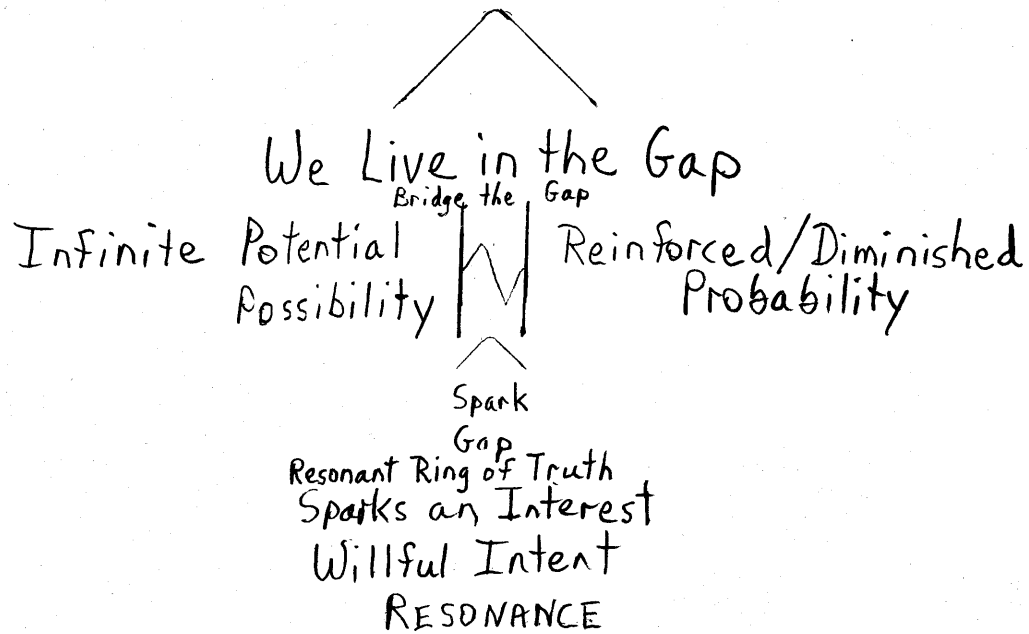 We Live in the Gap
Bridge the Gap
Infinite Potential Reinforced/Diminished
Possibility Probability
Spark
Gap
Resonant Ring of Truth
Sparks an Interest
Willful Intent
RESONANCE